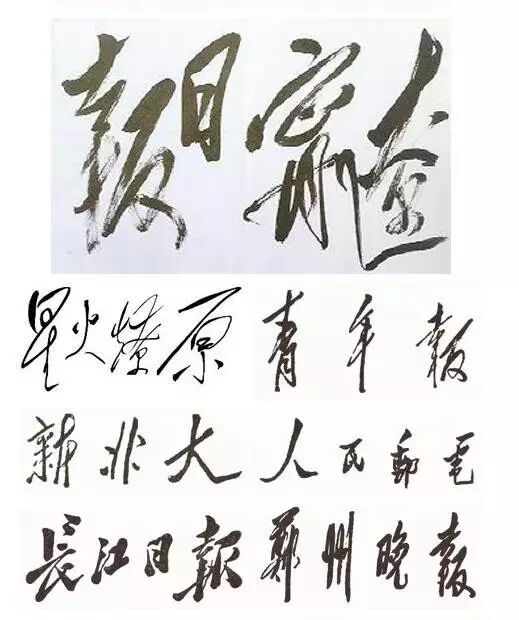 遼寧日報
星火燎原
青年報
新北大
人民郵電
長江日報
鄭州晚報